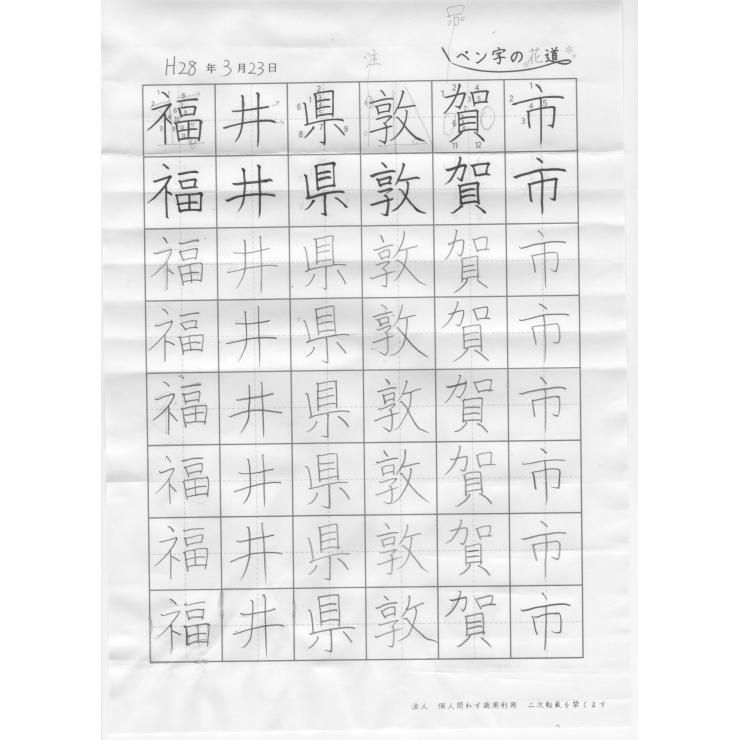 品
注
H28年3月23日
ペン字の花道
福井県敦賀市
福井県敦賀市
福井県敦賀市
福井県敦賀市
福井県敦賀市
福井県敦賀市
福井県敦賀市
福井県敦賀市
法人 個人問わず商用利用 二次転載を禁じます